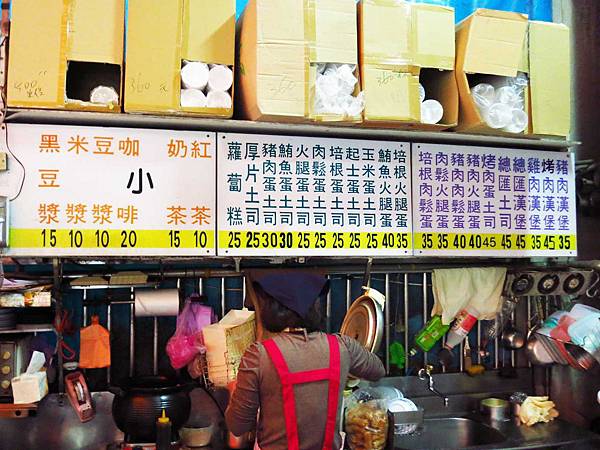 黑豆漿 15
米漿 10
豆漿 10
咖啡 20
小
奶茶 15
紅茶 10
蘿蔔糕 25
厚片土司 25
豬肉蛋土司 30
鮪魚蛋土司 30
火腿蛋土司 25
肉鬆蛋土司 25
培根蛋土司 25
起士蛋土司 25
玉米蛋土司 25
鮪魚火腿蛋 40
培根火腿蛋 35
培根肉鬆蛋 35
35
豬肉肉鬆蛋 40
豬肉火腿蛋 40
烤肉蛋土司 45
總匯土司 45
總匯漢堡 45
雞肉漢堡 35
烤肉漢堡 45
豬肉漢堡 35